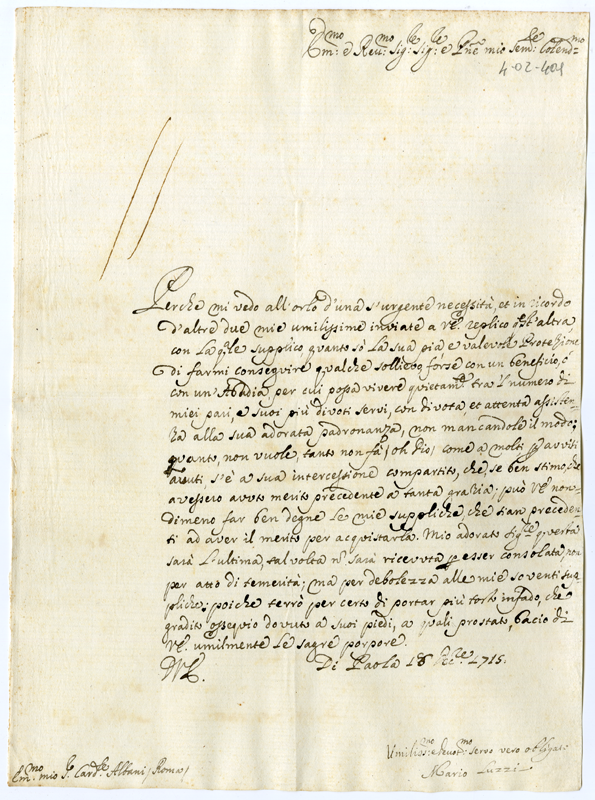 Em:mo e Reu:mo Sig:re Sig:re e Pne mio Sem:e Colend:mo
4-02-401
Perche mi vedo all'orlo d'una s'urgente necessità, et in ricordo
d'altre due mie umilissime inviate a VE. replico qst'altra
con la qle supplico quanto sò la sua pia e valevole Protezzione
di farmi conseguire qualche sollievo forse con un beneficio, ó
con un'Abbadia per cui possa vivere quietamte tra l'numero di
miei pari, e suoi più divoti servi, con divota et attenta assisten-
za alla sua adorata padronanza, non mancandole il modo:
quanto, non vuole, tanto non fá, (oh dio) come a molti
s'è a sua intercessione compartito, che, se ben stimo, che
avessero avuto merito precedente a tanta grazia; può VE. non-
dimeno far ben degne le mie suppliche che sian preceden-
ti ad aver il merito per acquistarla. Mio adorato Sig:re questa
sarà l'ultima, tal volta nò sarà ricevuta p esser consolata, non
per atto di temerità; ma per debolezza alle mie soventi sup-
pliche; poiche terrò per certo di portar più torto infado, che
gradito ossequio dovuto a suoi piedi, a quali prostato, bacio di
VE. umilmente le sagre porpore.
VE. Di Paola 18 1715.
Umiliss:mo e deuot:mo servo vero obligat:
Mario Luzzi
Em:mo mio S.r Card:le Albani (Roma)